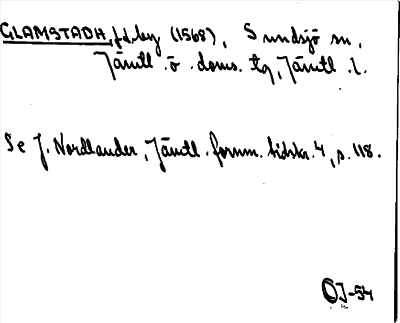 GLAMSTADH, fd. by (1568), Sundsjö sn,
Jämtl. ö. doms. tg, Jämtl. l.
Se J. Nordlander, Jämtl. fornm. tidskr. 4, s. 118.
OJ-54